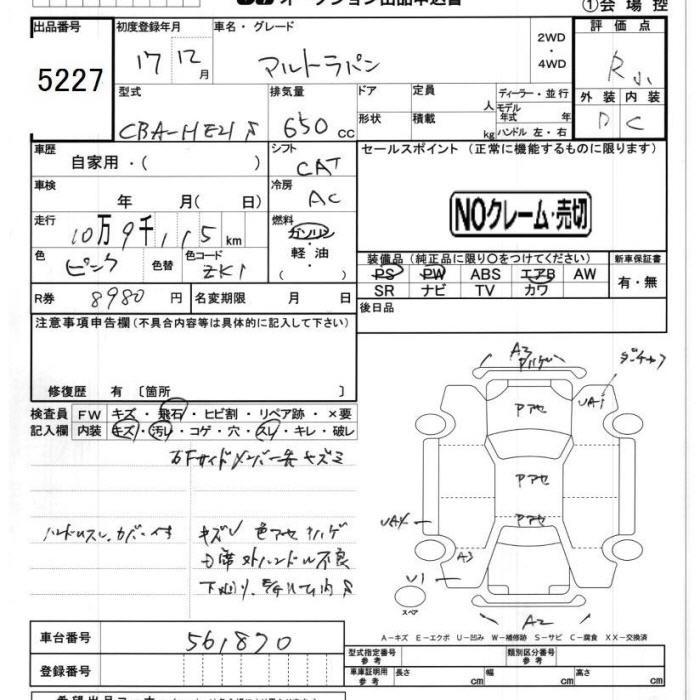 オークション出品申込書
①会場控
出品番号 5227
初度登録年月 17 12月
車名・グレード アルトラパン
2WD・4WD
評価点 R小
外装 D
内装 C
型式 CBA-HE21S
排気量 650cc
ドア
形状
定員 人
積載 kg
ディーラー・並行
モデル年式 年
ハンドル 左・右
車歴 自家用・( )
シフト CAT
セールスポイント (正常に機能するものに限ります)
車検 年 月( 日)
冷房 AC
NOクレーム・売切
走行 10万9千115km
燃料 ガソリン・軽油・( )
色 ピンク
色替
色コード ZK1
装備品(純正品に限り○をつけてください)
PS PW ABS エアB AW
SR ナビ TV カワ
新車保証書 有・無
R券 8980円
名変期限 月 日
後日品
注意事項申告欄(不具合内容等は具体的に記入して下さい)
修復歴 有〔箇所 〕
検査員記入欄
FW キズ・飛石・ヒビ割・リペア跡・×要
内装 キズ・汚レ・コゲ・穴・スレ・キレ・破レ
キズ 色アセ ハゲ
A3
ハゲ
UA1
Pアセ
Pアセ
Pアセ
A3
U1
A2
スペア
A-キズ E-エクボ U-凹み W-補修跡 S-サビ C-腐食 XX-交換済
車台番号 561870
登録番号
型式指定番号 参考
類別区分番号 参考
車庫証明用 参考 長さ cm 幅 cm 高さ cm